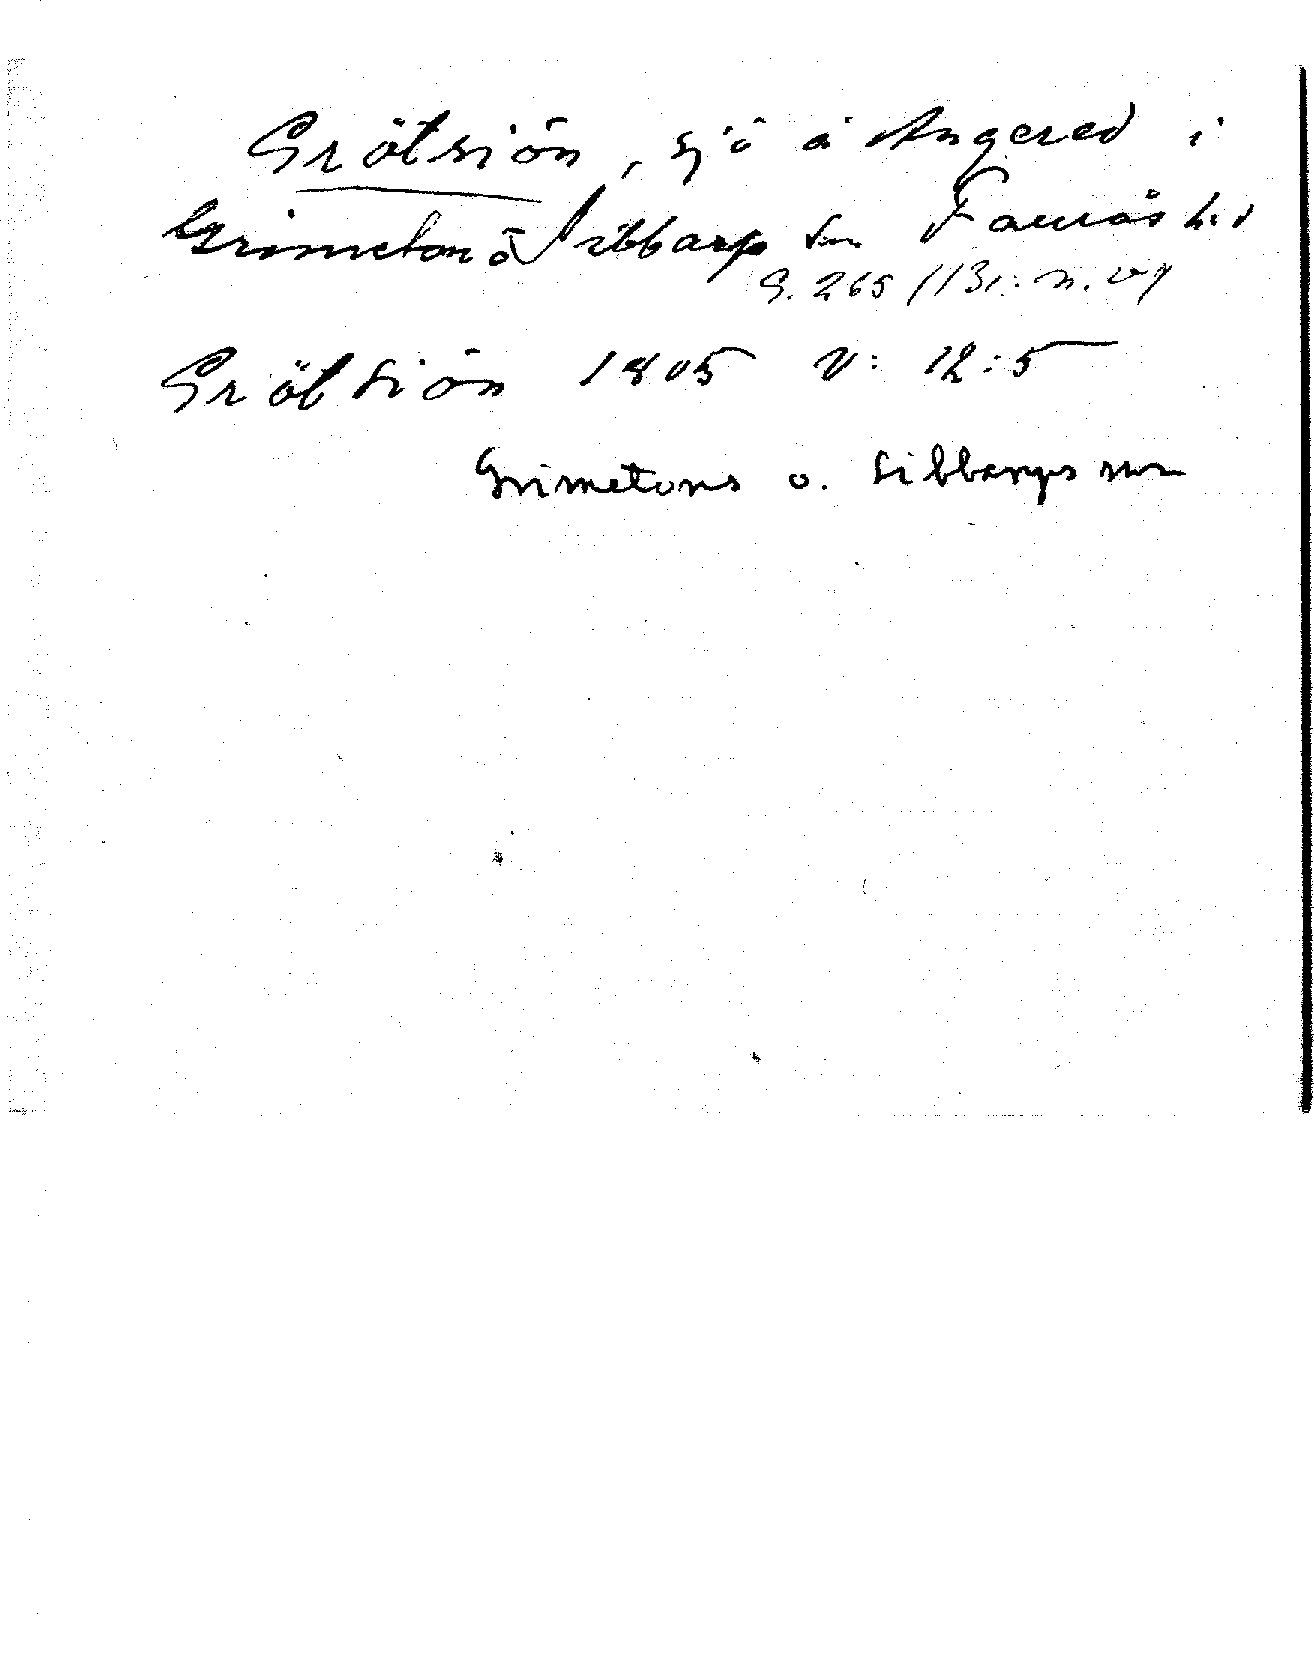 Grötsiön, sjö å Angered i
Grimeton o Sibbarp sn Faurås hd
G. 265 /
Grötsiön 1805 V: 12:5
Grimetons o. Sibbarps snr